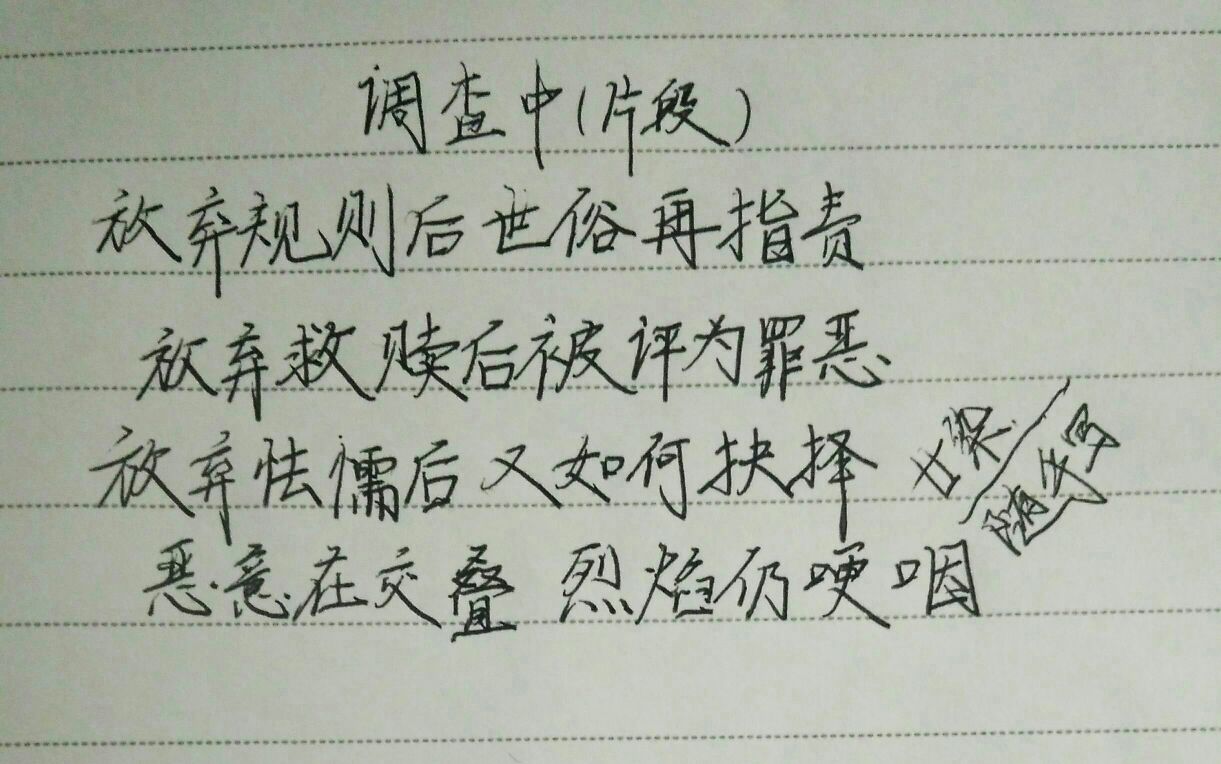 调查中(片段)
放弃规则后世俗再指责
放弃救赎后被评为罪恶
放弃怯懦后又如何抉择
恶意在交叠 烈焰仍哽咽
随手写